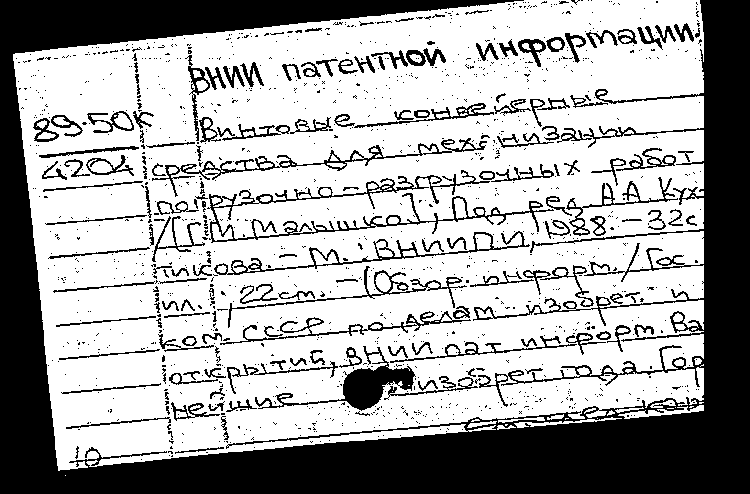 ВНИИ патентной информации.
89-50К
4204
Винтовые конвейерные
средства для механизации
погрузочно-разгрузочных работ
/[Г.М. Малышко]; Под ред. А.А. Кух-
тикова. - М.: ВНИИПИ, 1988. - 32с.
ил.; 22см. - (Обзор. информ. / Гос.
ком. СССР по делам изобрет. и
открытий, ВНИИ пат информ. Ва
нейшие изобрет года. Гор
См. след. кар
10